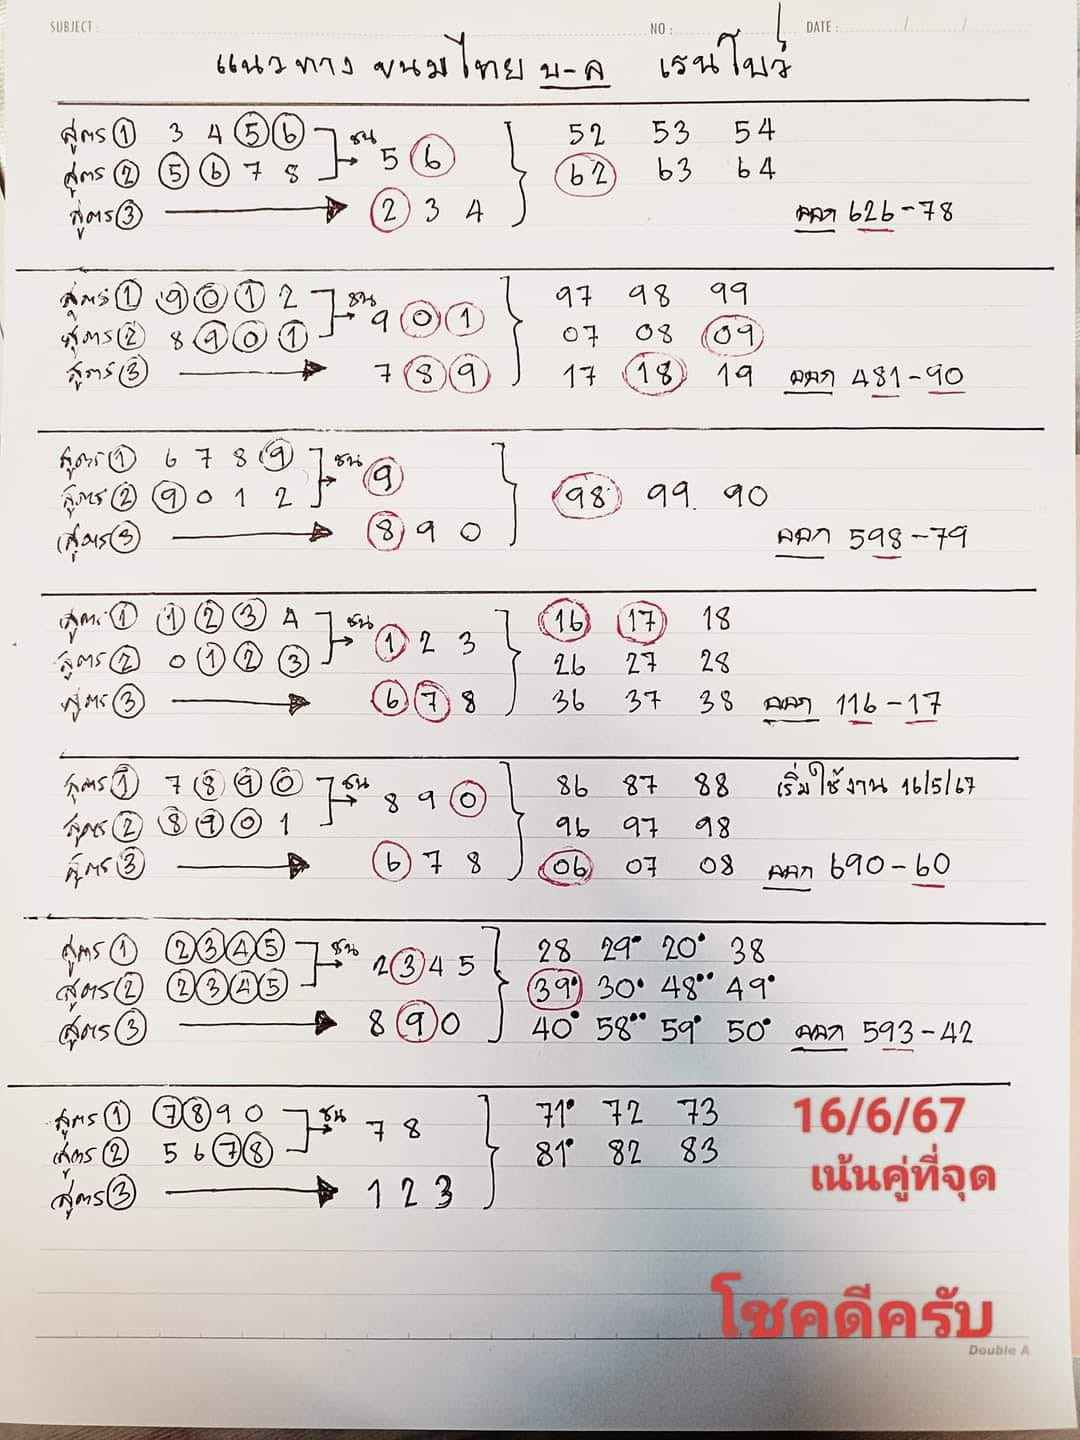 SUBJECT : NO : DATE : / /
แนวทาง ขนมไทย บ-ล เรนโบว์
สูตร ① 3 4 5 6 ชน 5 6 52 53 54
สูตร ② 5 6 7 8 62 63 64
สูตร ③ 2 3 4 ออก 626-78
สูตร ① 9 0 1 2 ชน 9 0 1 97 98 99
สูตร ② 8 9 0 1 07 08 09
สูตร ③ 7 8 9 17 18 19 ออก 481-90
สูตร ① 6 7 8 9 ชน 9
สูตร ② 9 0 1 2 98 99 90
สูตร ③ 8 9 0 ออก 598-79
สูตร ① 1 2 3 4 ชน 1 2 3 16 17 18
สูตร ② 0 1 2 3 26 27 28
สูตร ③ 6 7 8 36 37 38 ออก 116-17
สูตร ① 7 8 9 0 ชน 8 9 0 86 87 88 เริ่มใช้งาน 16/5/67
สูตร ② 8 9 0 1 96 97 98
สูตร ③ 6 7 8 06 07 08 ออก 690-60
สูตร ① 2 3 4 5 ชน 2 3 4 5 28 29• 20• 38
สูตร ② 2 3 4 5 39• 30• 48•• 49•
สูตร ③ 8 9 0 40• 58•• 59• 50• ออก 593-42
สูตร ① 7 8 9 0 ชน 7 8 71• 72 73 16/6/67
สูตร ② 5 6 7 8 81• 82 83 เน้นคู่ที่จุด
สูตร ③ 1 2 3
โชคดีครับ
Double A